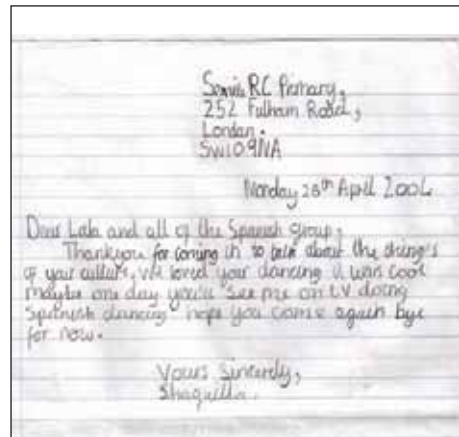 Servite RC Primary,
252 Fulham Road,
London.
SW10 9NA
Monday 26th April 2004
Dear Lola and all of the Spanish group,
Thankyou for coming in to talk about the things
of your culture, we loved your dancing it was cool
maybe one day you'll see me on TV doing
Spanish dancing hope you come again bye
for now.
Yours Sincerely,
Shaquilla.